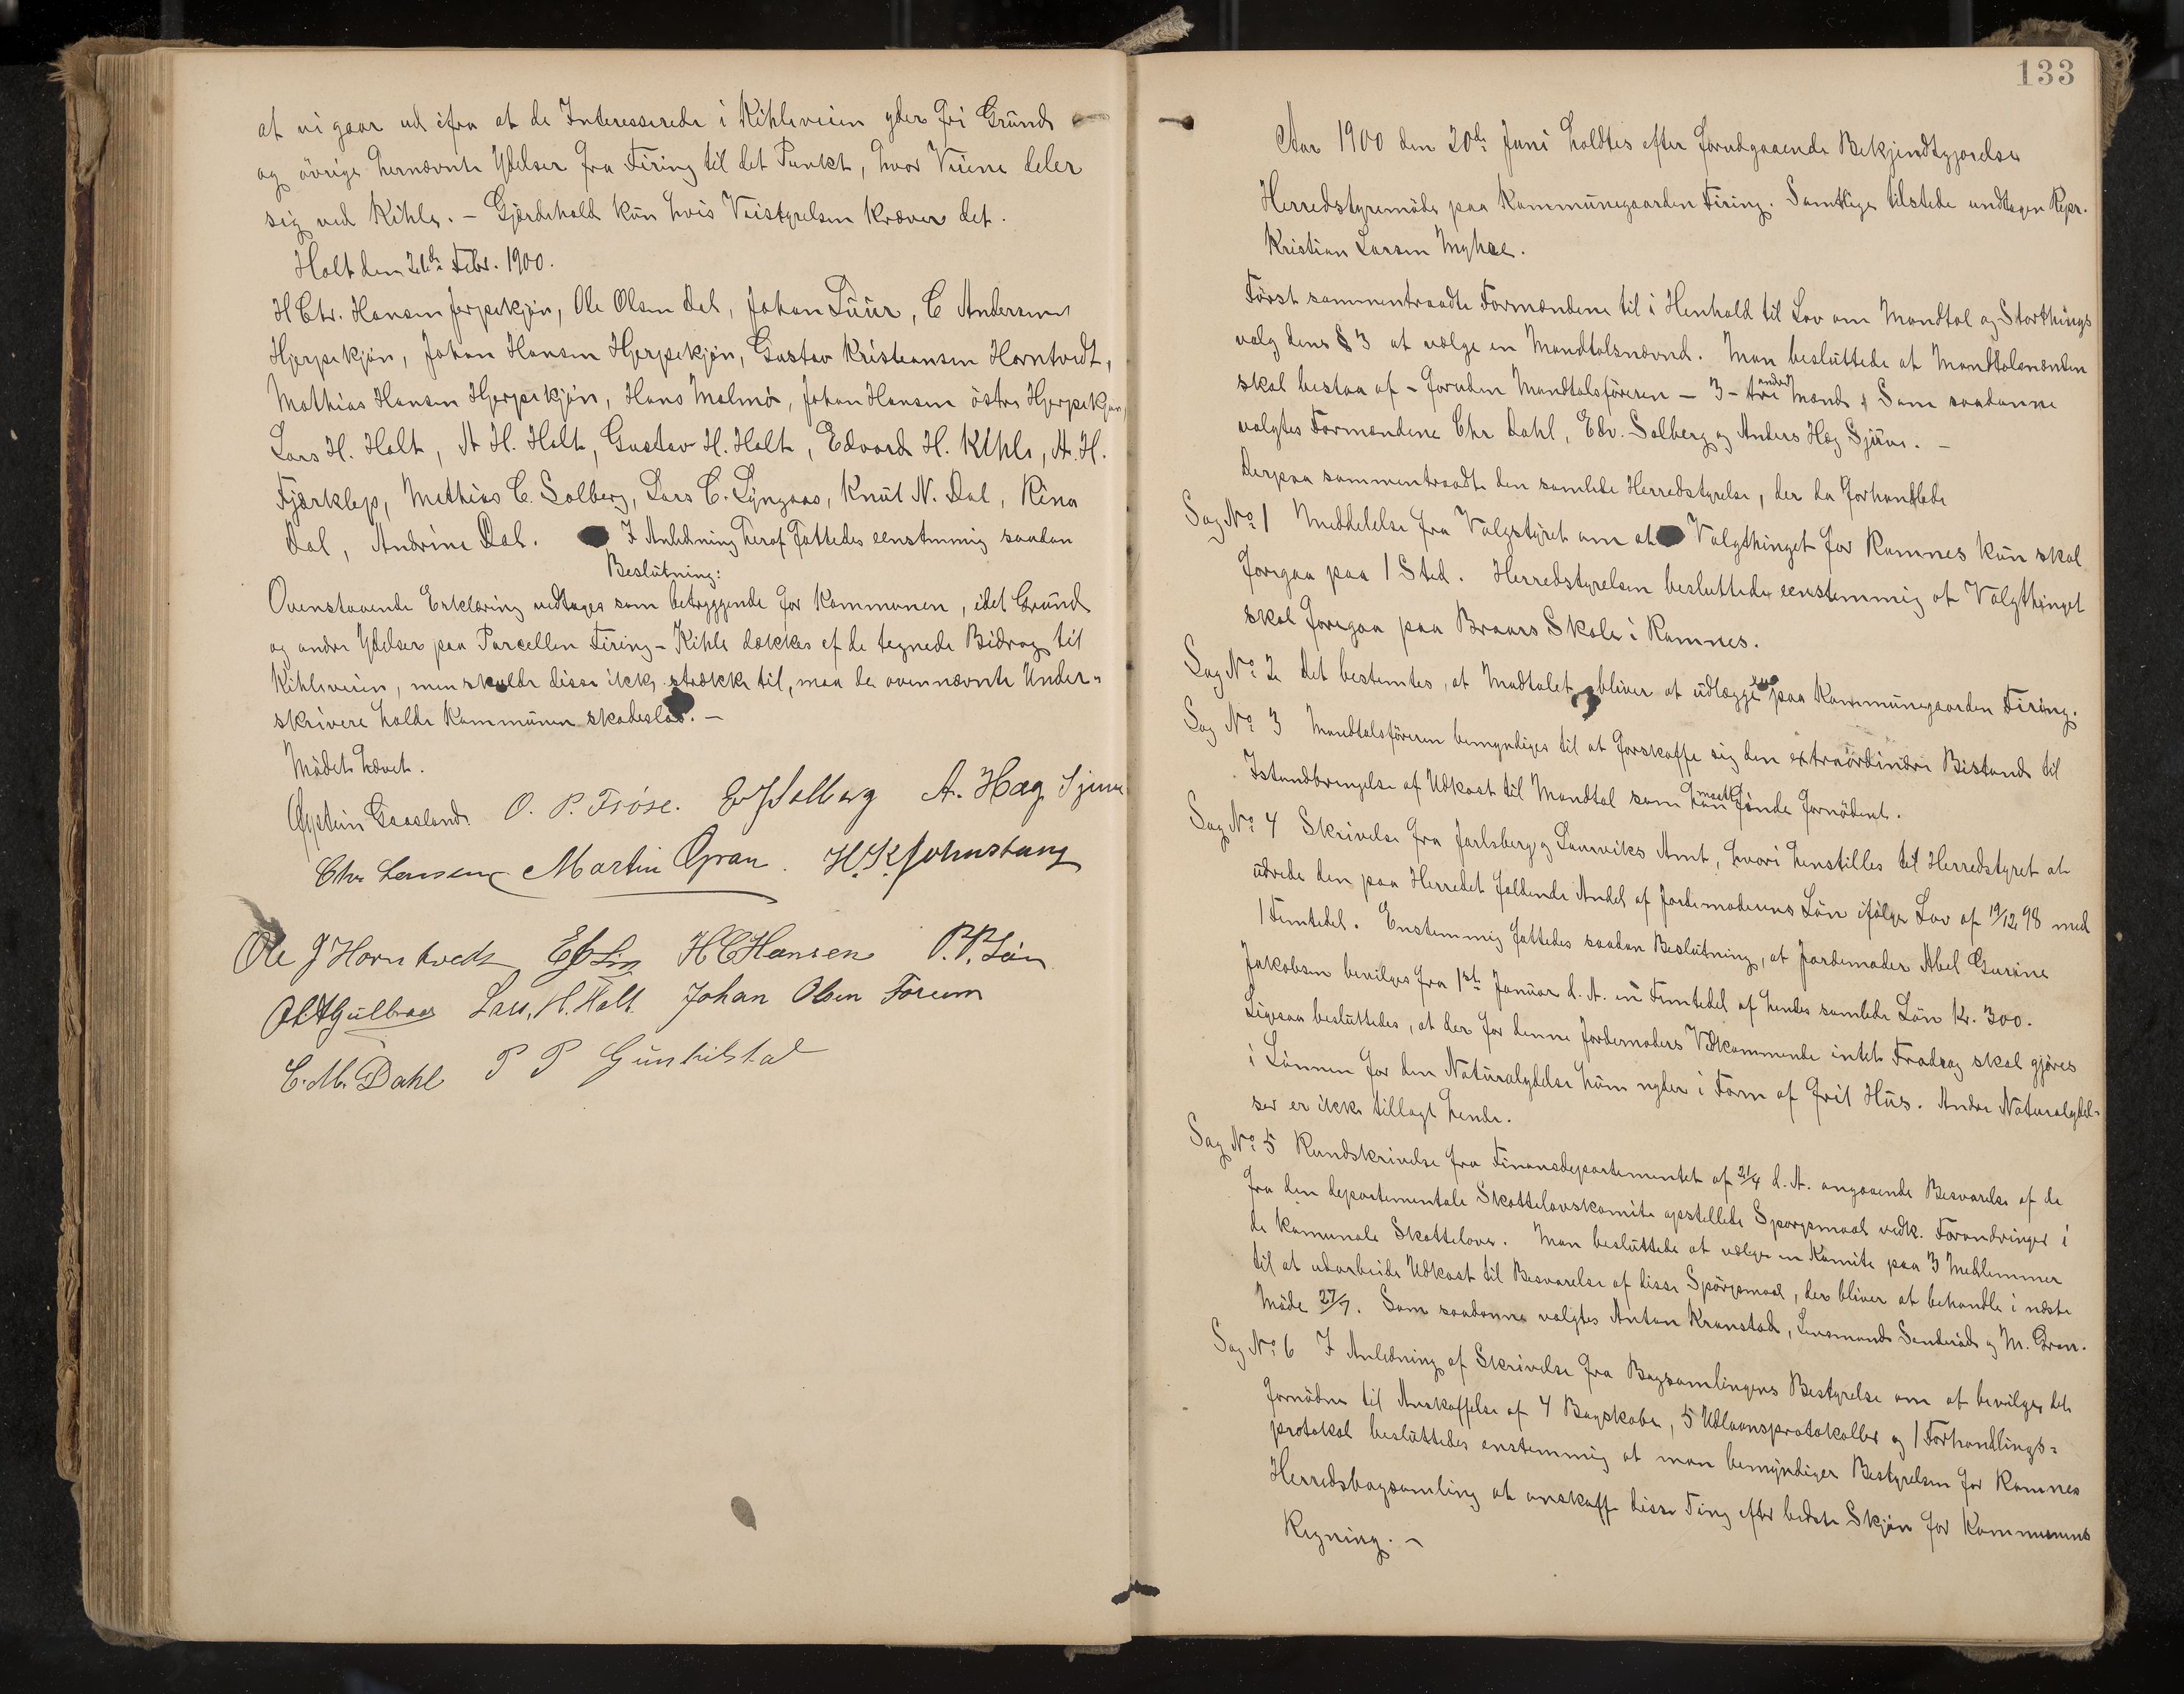 at vi gaar ud ifra at de Interesserede i Kihleveien yder fri Grund
og övrige hernævnte Ydelser fra Firing til det Punkt, hvor Veiene deler
sig ved Kihle. - Gjærdehold kun hvis Veistyrelsen kræver det.
Holt den 26de Febr. 1900.
H Chr. Hansen Jerpekjøn, Ole Olsen Dal, Johan Ruur, C Andersen
Hjerpekjøn, Johan Hansen Hjerpekjøn, Gustav Kristiansen Horntvedt,
Mathias Hansen Hjerpekjøn, Hans Malmö, Johan Hansen östre Hjerpekjøn,
Lars H. Holt, A H. Holt, Gustav H. Holt, Edvard H. Kihle, A. H.
Fjærklep, Mathias C. Solberg, Lars C. Lyngaas, Knut N. Dal, Rina
Dal, Andrine Dal. I Anledning heraf fattedes eenstemmig saadan
Beslutning:
Ovenstaaende Erklæring vedtages som betryggende for Kommunen, idet Grund
og andre Ydelser paa Parcellen Firing - Kihle dækkes af de tegnede Bidrag til
Kihleveien, men skulde disse ikke strække til, maa de ovennævnte Under-
skrivere holde Kommunen skadeslös. -
Mödet hævet.
Øystein Gaasland. O. P. Fröse. Edv Solberg A. Hæg Sjuve
Chr Larsen Martin Gran. H. K. Johnstang
Ole J Horntvedt H C Hansen P. P. Lön
O A Gulbraar Lars. H. Holt. Johan Olsen Foreum
C. M. Dahl P P Gunhilstad
133
Aar 1900 den 20de Juni holdtes efter forudgaaende Bekjendtgjorelse
Herredstyremöde paa Kommunegaarden Firing. Samtlige tilstede undtagen Repr.
Kristian Larsen Myhre.
Först sammentraadte Formændene til i Henhold til Lov om Mandtal og Storthings
valg dens § 3 at vælge en Mandtalsnævnd. Man besluttede at Mandtalsnævnden
skal bestaa af - foruden Mandtalsföreren - 3 - tre andre Mænd. Som saadanne
valgtes Formændene Chr Dahl, Edv. Solberg og Anders Hæg Sjuve. -
Derpaa sammentraadte den samlede Herredstyrelse, der da forhandlede
Sag No 1 Meddelelse fra Valgstyret om at Valgthinget for Ramnes kun skal
foregaa paa 1 Sted. Herredstyrelsen besluttede eenstemmig at Valgthinget
skal foregaa paa Braars Skole i Ramnes.
Sag No 2 Det bestemtes, at Madtalet bliver at udlægge paa Kommunegaarden Firing.
Sag No 3 Mandtalsföreren bemyndiges til at forskaffe sig den extraordinære Bistand til
Istandbringelse af Udkast til Mandtal som han maatte finde fornödent.
Sag No 4 Skrivelse fra Jarlsberg og Laurviks Amt, hvori henstilles til Herredstyret at
udrede den paa Herredet faldende Andel af Jordemoderens Lön ifölge Lov af 19/12 98 med
1 Femtedel. Enstemmig fattedes saadan Beslutning, at Jordemoder Abel Gurine
Jakobsen bevilges fra 1ste Januar d. A. en Femtedel af hendes samlede Lön Kr. 300.
Ligesaa besluttedes, at der for denne Jordemoders Vedkommende intet Fradrag skal gjöres
i Lönnen for den Naturalydelse hun nyder i Form af frit Hus. Andre Naturalydel-
ser er ikke tillagt hende.
Sag No 5 Rundskrivelse fra Finansdepartementet af 21/4 d. A. angaaende Besvarelse af de
fra den departementale Skattelovskomite opstillede Sporgsmaal vedk. Forandringer i
de komunale Skattelove. Man besluttede at vælge en Komite paa 3 Medlemmer
til at udarbeide Udkast til Besvarelse af disse Spörgsmaal, der bliver at behandle i næste
Möde 27/7. Som saadanne valgtes Anton Kranstad, Lensmand Sanderöd og M. Gran.
Sag No 6 I Anledning af Skrivelse fra Bogsamlingens Bestyrelse om at bevilges det
fornödne til Anskaffelse af 4 Bogskabe, 5 Udlaansprotokoller og 1 Forhandlings-
protokol besluttedes enstemmig at man bemyndiger Bestyrelsen for Ramnes
Herredsbogsamling at anskaffe disse Ting efter bedste Skjön for Kommunens
Regning. -